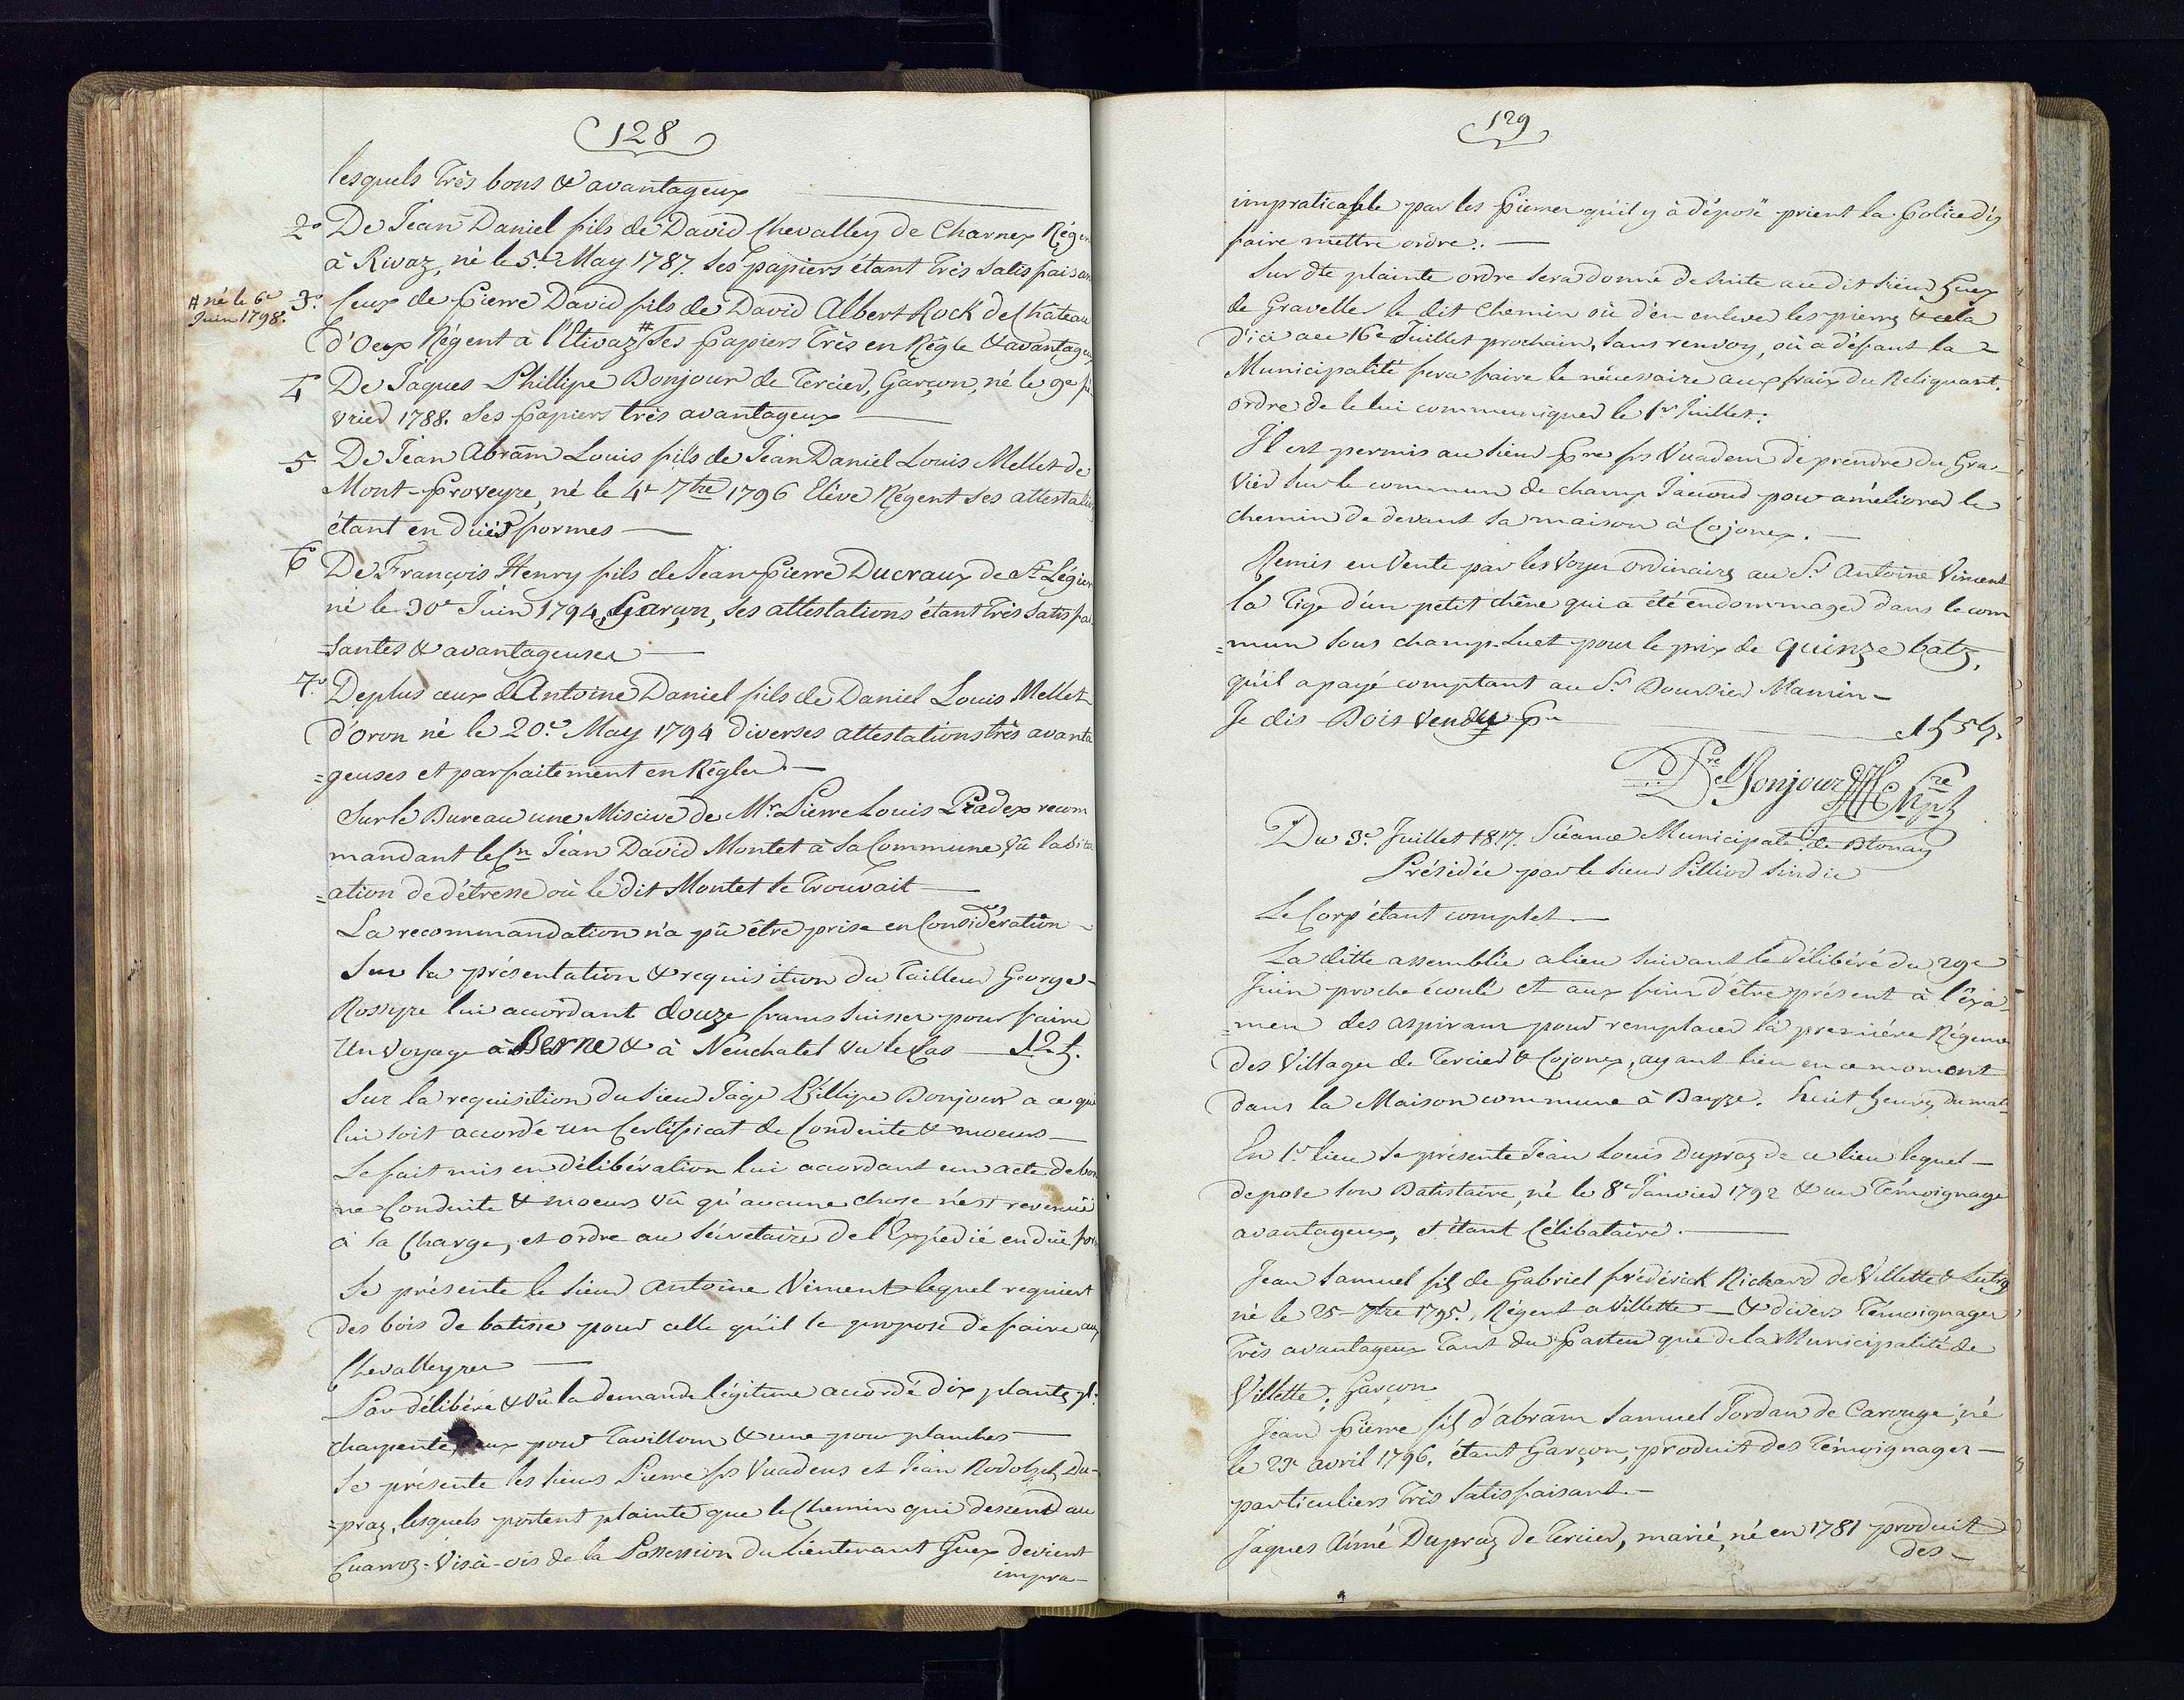 128
lesquels Très bons & avantageux
2º De Jean Daniel fils de David Chevalley de Charnex Régen
à Rivaz, né le 5e May 1787. Ses papiers étant Très satisfaisan
# né le 6e
Juin 1798.
3º Ceux de Pierre David fils de David Albert Rock de Château
d'Oex Régent à l'Etivaz # Ses Papiers Très en Règle & avantageux
4 De Jaques Phillipe Bonjour de Tercier, Garçon, né le 9e fé
vrier 1788. Ses Papiers très avantageux
5 De Jean Abrãm Louis fils de Jean Daniel Louis Mellet de
Mont-Proveyre, né le 4e 7bre 1796 Elève Régent ses attestations
étant en duës formes
6 De François Henry fils de Jean Pierre Ducraux de St Légier
né le 30e Juin 1794, Garçon, ses attestations étant Très satisfai
=santes & avantageuses
7º De plus ceux d'Antoine Daniel fils de Daniel Louis Mellet
d'Oron né le 20e May 1794 diverses attestations très avanta
=geuses et parfaitement en Règle.
Sur le Bureau une Miscive de Mr. Pierre Louis Pradex recom
mandant le Cn Jean David Montet à sa Commune vû la situ
=ation de détresse où le dit Montet se Trouvait
La recommandation n'a pû être prise en Considération
Sur la présentation & requisition du Tailleur George
Rossyre lui accordant douze francs suisses pour faire
un voyage à Berne & à Neuchatel vu le Cas 12 f.
Sur la requisition du sieur Jaqs Phillipe Bonjour a ce qui
lui soit accordé un Certificat de Conduite & moeurs
Le fait mis en délibération lui accordant un acte de bon
ne Conduite & moeurs vû qu'aucune chose n'est revenuë
à sa Charge, et ordre au sécretaire de l'Expédié en duë for
Se présente le sieur Antoine Vincent lequel requiert
des bois de batisse pour celle qu'il se propose de faire aux
Chevalleyres
Par délibéré & vû la demande légitime accordé dix plantes pr.
charpente, deux pour Tavillons & une pour planches
Se présente les sieurs Pierre frs Vuadens et Jean Rodolph Du-
=praz, lesquels portent plainte que le Chemin qui descend au
Cuarroz vis-à-vis de la Possession du Lieutenant Guex devient
impra-
129
impraticable par les pierres qu'il y à déposé prient la Police d'y
faire mettre ordre.
Sur dte plainte ordre sera donné de suite au dit sieur Guex
de Graveller le dit Chemin où d'en enlever les pierres & cela
d'ici au 16e Juillet prochain, sans renvoy, où a défaut la
Municipalité fera faire le nécessaire aux fraix du Reliquant.
ordre de le lui communiquer le 1er Juillet.
Il est permis au sieur Pre frs Vuadens de prendre du Gra-
vier sur le commun de champ Jaccoud pour améliorer le
chemin de devant sa maison à Cojonex.
Remis en Vente par les Voyer ordinaires au Sr. Antoine Vincent
la Tige d'un petit chêne qui a été endommagé dans le com
=mun sous champ-Luet pour le prix de quinze batz,
qu'il a payé comptant au Sr Boursier Mamin
Je dis Bois vendu Pr 1 f 5 bz.
Bonjour
Du 3e Juillet 1817. Séance Municipale de Blonay
Présidée par le sieur Pilliod Sindic
Le Corps étant complet.
La ditte assemblée a lieu suivant le délibéré du 29e
Juin proche écoulé et aux fins d'être présent à l'éxa-
=men des aspirans pour remplacer la première Régence
des Villages de Tercier & Cojonex, ayant lieu en ce moment
dans la Maison commune à Bayze. huit heures du mat-
En 1er lieu se présente Jean Louis Dupraz de ce lieu lequel
depose son Batistaire, né le 8e Janvier 1792 & un Témoignage
avantageux, et étant Célibataire.
Jean Samuel fils de Gabriel frédérick Richard de Villette & Lutry
né le 25 7bre 1795. Régent a Villette & divers Témoignages
Très avantageux Tant du Pasteur que de la Municipalité de
Villette; Garçon
Jean Pierre fils d'abrãm Samuel Jordan de Carouge, né
le 23e avril 1796, étant Garçon, produit des Témoignages
particuliers Très satisfaisant.
Jaques Aimé Dupraz de Tercier, marié, né en 1781 produit
des